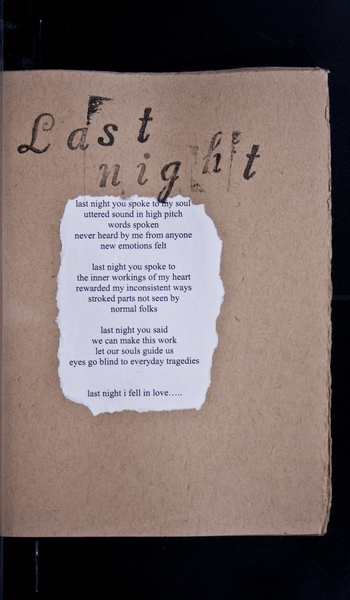 Last
night
last night you spoke to my soul
uttered sound in high pitch
words spoken
never heard by me from anyone
new emotions felt
last night you spoke to
the inner workings of my heart
rewarded my inconsistent ways
stroked parts not seen by
normal folks
last night you said
we can make this work
let our souls guide us
eyes go blind to everyday tragedies
last night i fell in love…..